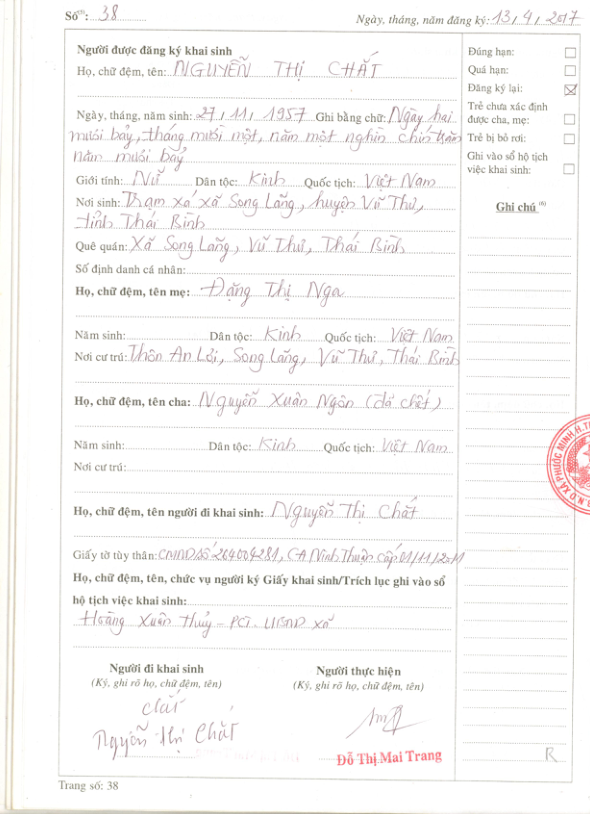 Số⁽⁵⁾: 38
Ngày, tháng, năm đăng ký: 13, 4, 2017
Người được đăng ký khai sinh
Họ, chữ đệm, tên: NGUYỄN THỊ CHẮT
Ngày, tháng, năm sinh: 27, 11, 1957 Ghi bằng chữ: Ngày hai
mươi bảy, tháng mười một, năm một nghìn chín trăm
năm mươi bảy
Giới tính: Nữ Dân tộc: Kinh Quốc tịch: Việt Nam
Nơi sinh: Trạm xá xã Song Lãng, huyện Vũ Thư,
tỉnh Thái Bình
Quê quán: Xã Song Lãng, Vũ Thư, Thái Bình
Số định danh cá nhân:
Họ, chữ đệm, tên mẹ: Đặng Thị Nga
Năm sinh: Dân tộc: Kinh Quốc tịch: Việt Nam
Nơi cư trú: Thôn An Lợi, Song Lãng, Vũ Thư, Thái Bình
Họ, chữ đệm, tên cha: Nguyễn Xuân Ngôn (đã chết)
Năm sinh: Dân tộc: Kinh Quốc tịch: Việt Nam
Nơi cư trú:
Họ, chữ đệm, tên người đi khai sinh: Nguyễn Thị Chắt
Giấy tờ tùy thân: CMND số 264004281, CA Ninh Thuận cấp 01/11/2011
Họ, chữ đệm, tên, chức vụ người ký Giấy khai sinh/Trích lục ghi vào sổ
hộ tịch việc khai sinh:
Hoàng Xuân Thủy - PCT - UBND xã
Người đi khai sinh
(Ký, ghi rõ họ, chữ đệm, tên)
Chắt
Nguyễn Thị Chắt
Người thực hiện
(Ký, ghi rõ họ, chữ đệm, tên)
Đỗ Thị Mai Trang
Trang số: 38
Đúng hạn:
Quá hạn:
Đăng ký lại:
Trẻ chưa xác định
được cha, mẹ:
Trẻ bị bỏ rơi:
Ghi vào sổ hộ tịch
việc khai sinh:
Ghi chú ⁽⁶⁾
R